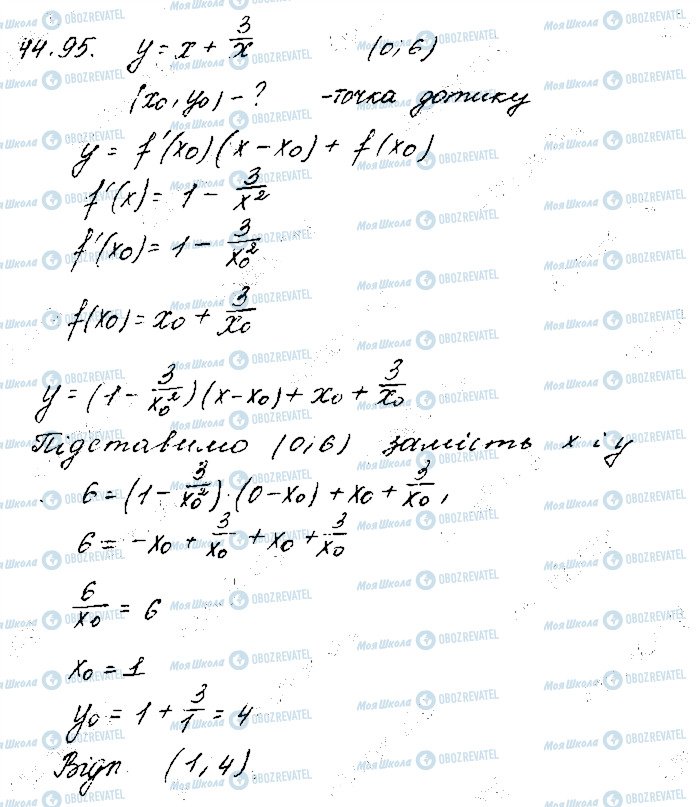 44.95. y = x + 3/x (0; 6)
(x₀, y₀) - ? - точка дотику
y = f'(x₀)(x - x₀) + f(x₀)
f'(x) = 1 - 3/x²
f'(x₀) = 1 - 3/x₀²
f(x₀) = x₀ + 3/x₀
y = (1 - 3/x₀²)(x - x₀) + x₀ + 3/x₀
Підставимо (0; 6) замість x і y
6 = (1 - 3/x₀²) · (0 - x₀) + x₀ + 3/x₀,
6 = -x₀ + 3/x₀ + x₀ + 3/x₀
6/x₀ = 6
x₀ = 1
y₀ = 1 + 3/1 = 4
Відп (1, 4)